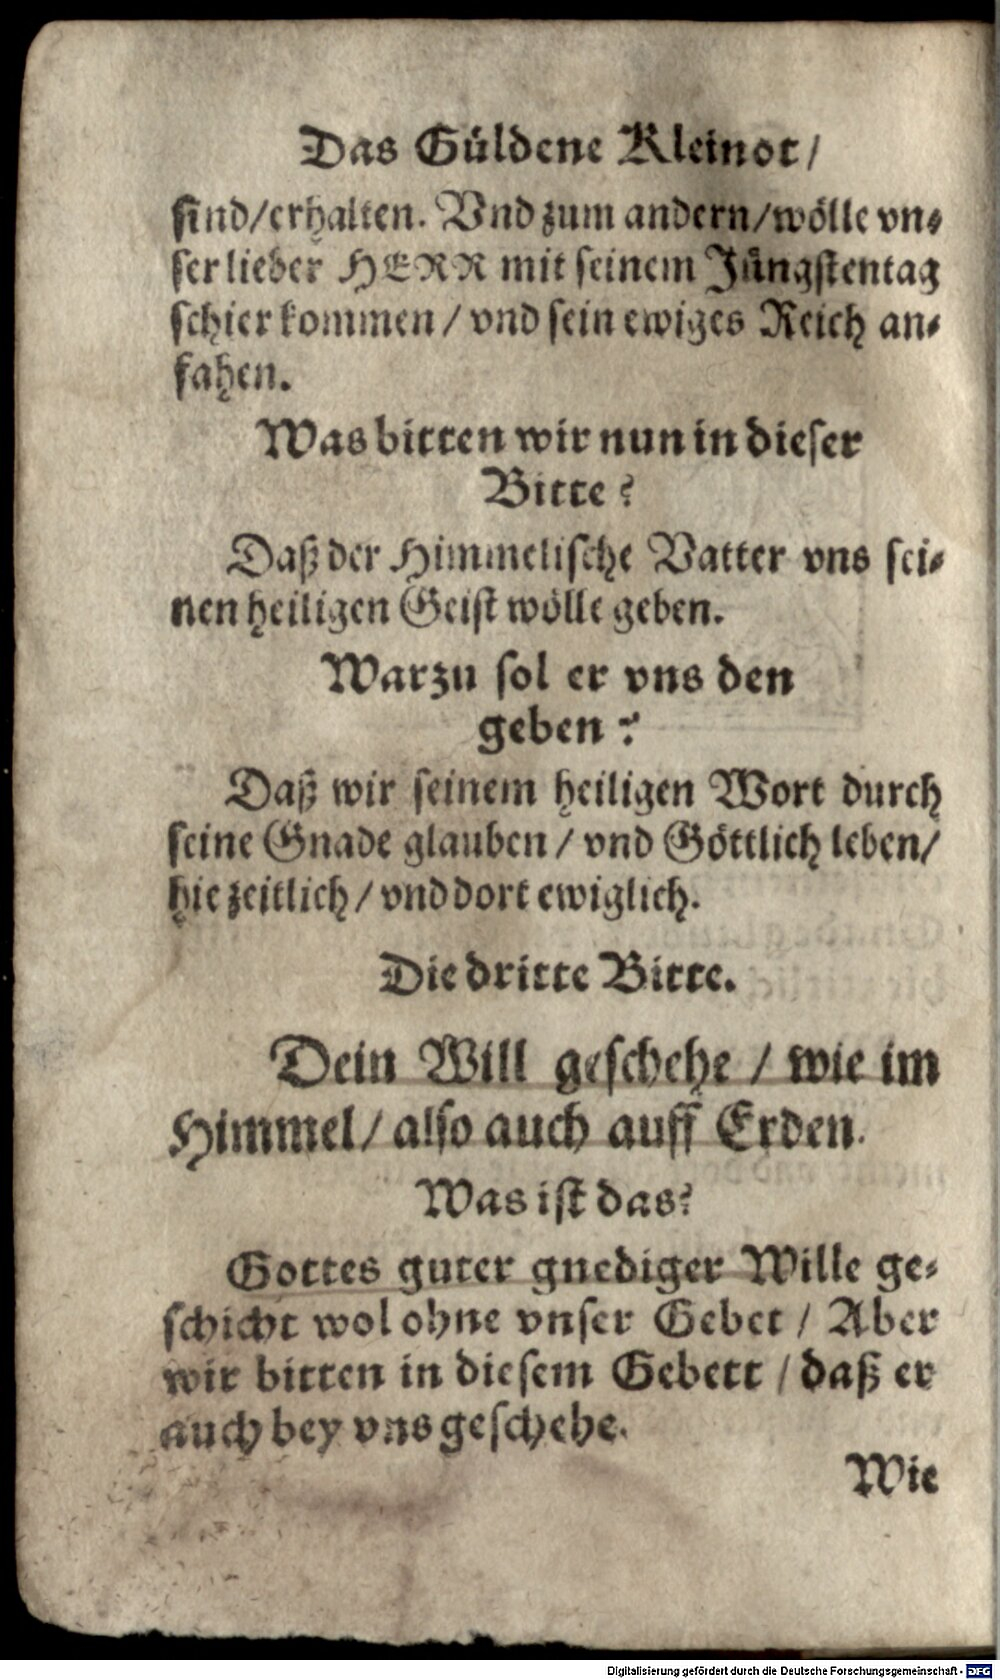 Das Güldene Kleinot/
sind/erhalten. Vnd zum andern/wölle vn-
ser lieber HERR mit seinem Jüngstentag
schier kommen / vnd sein ewiges Reich an-
fahen.
Was bitten wir nun in dieser
Bitte?
Daß der Himmelische Vatter vns sei-
nen heiligen Geist wölle geben.
Warzu sol er vns den
geben?
Daß wir seinem heiligen Wort durch
seine Gnade glauben / vnd Göttlich leben/
hie zeitlich / vnd dort ewiglich.
Die dritte Bitte.
Dein Will geschehe / wie im
Himmel/ also auch auff Erden.
Was ist das?
Gottes guter gnediger Wille ge-
schicht wol ohne vnser Gebet / Aber
wir bitten in diesem Gebett / daß er
auch bey vns geschehe.
Wie
Digitalisierung gefördert durch die Deutsche Forschungsgemeinschaft - DFG